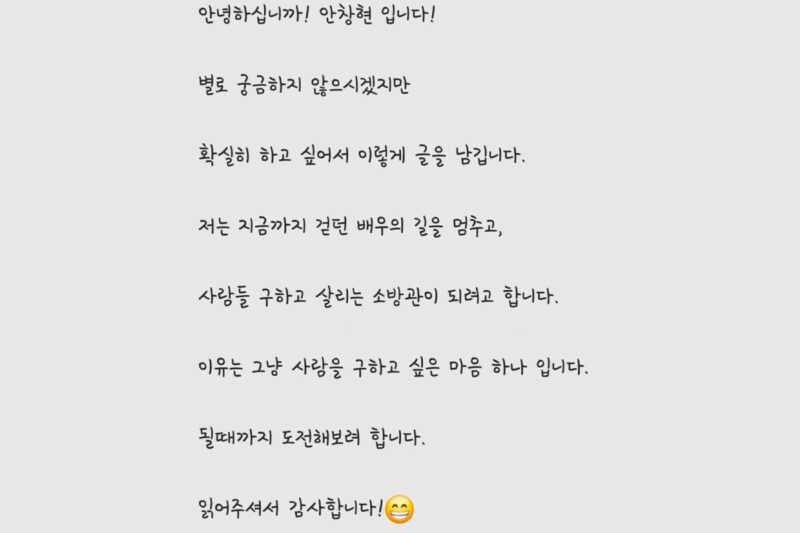 안녕하십니까! 안창현 입니다!
별로 궁금하지 않으시겠지만
확실히 하고 싶어서 이렇게 글을 남깁니다.
저는 지금까지 걷던 배우의 길을 멈추고,
사람들 구하고 살리는 소방관이 되려고 합니다.
이유는 그냥 사람을 구하고 싶은 마음 하나 입니다.
될때까지 도전해보려 합니다.
읽어주셔서 감사합니다!😁